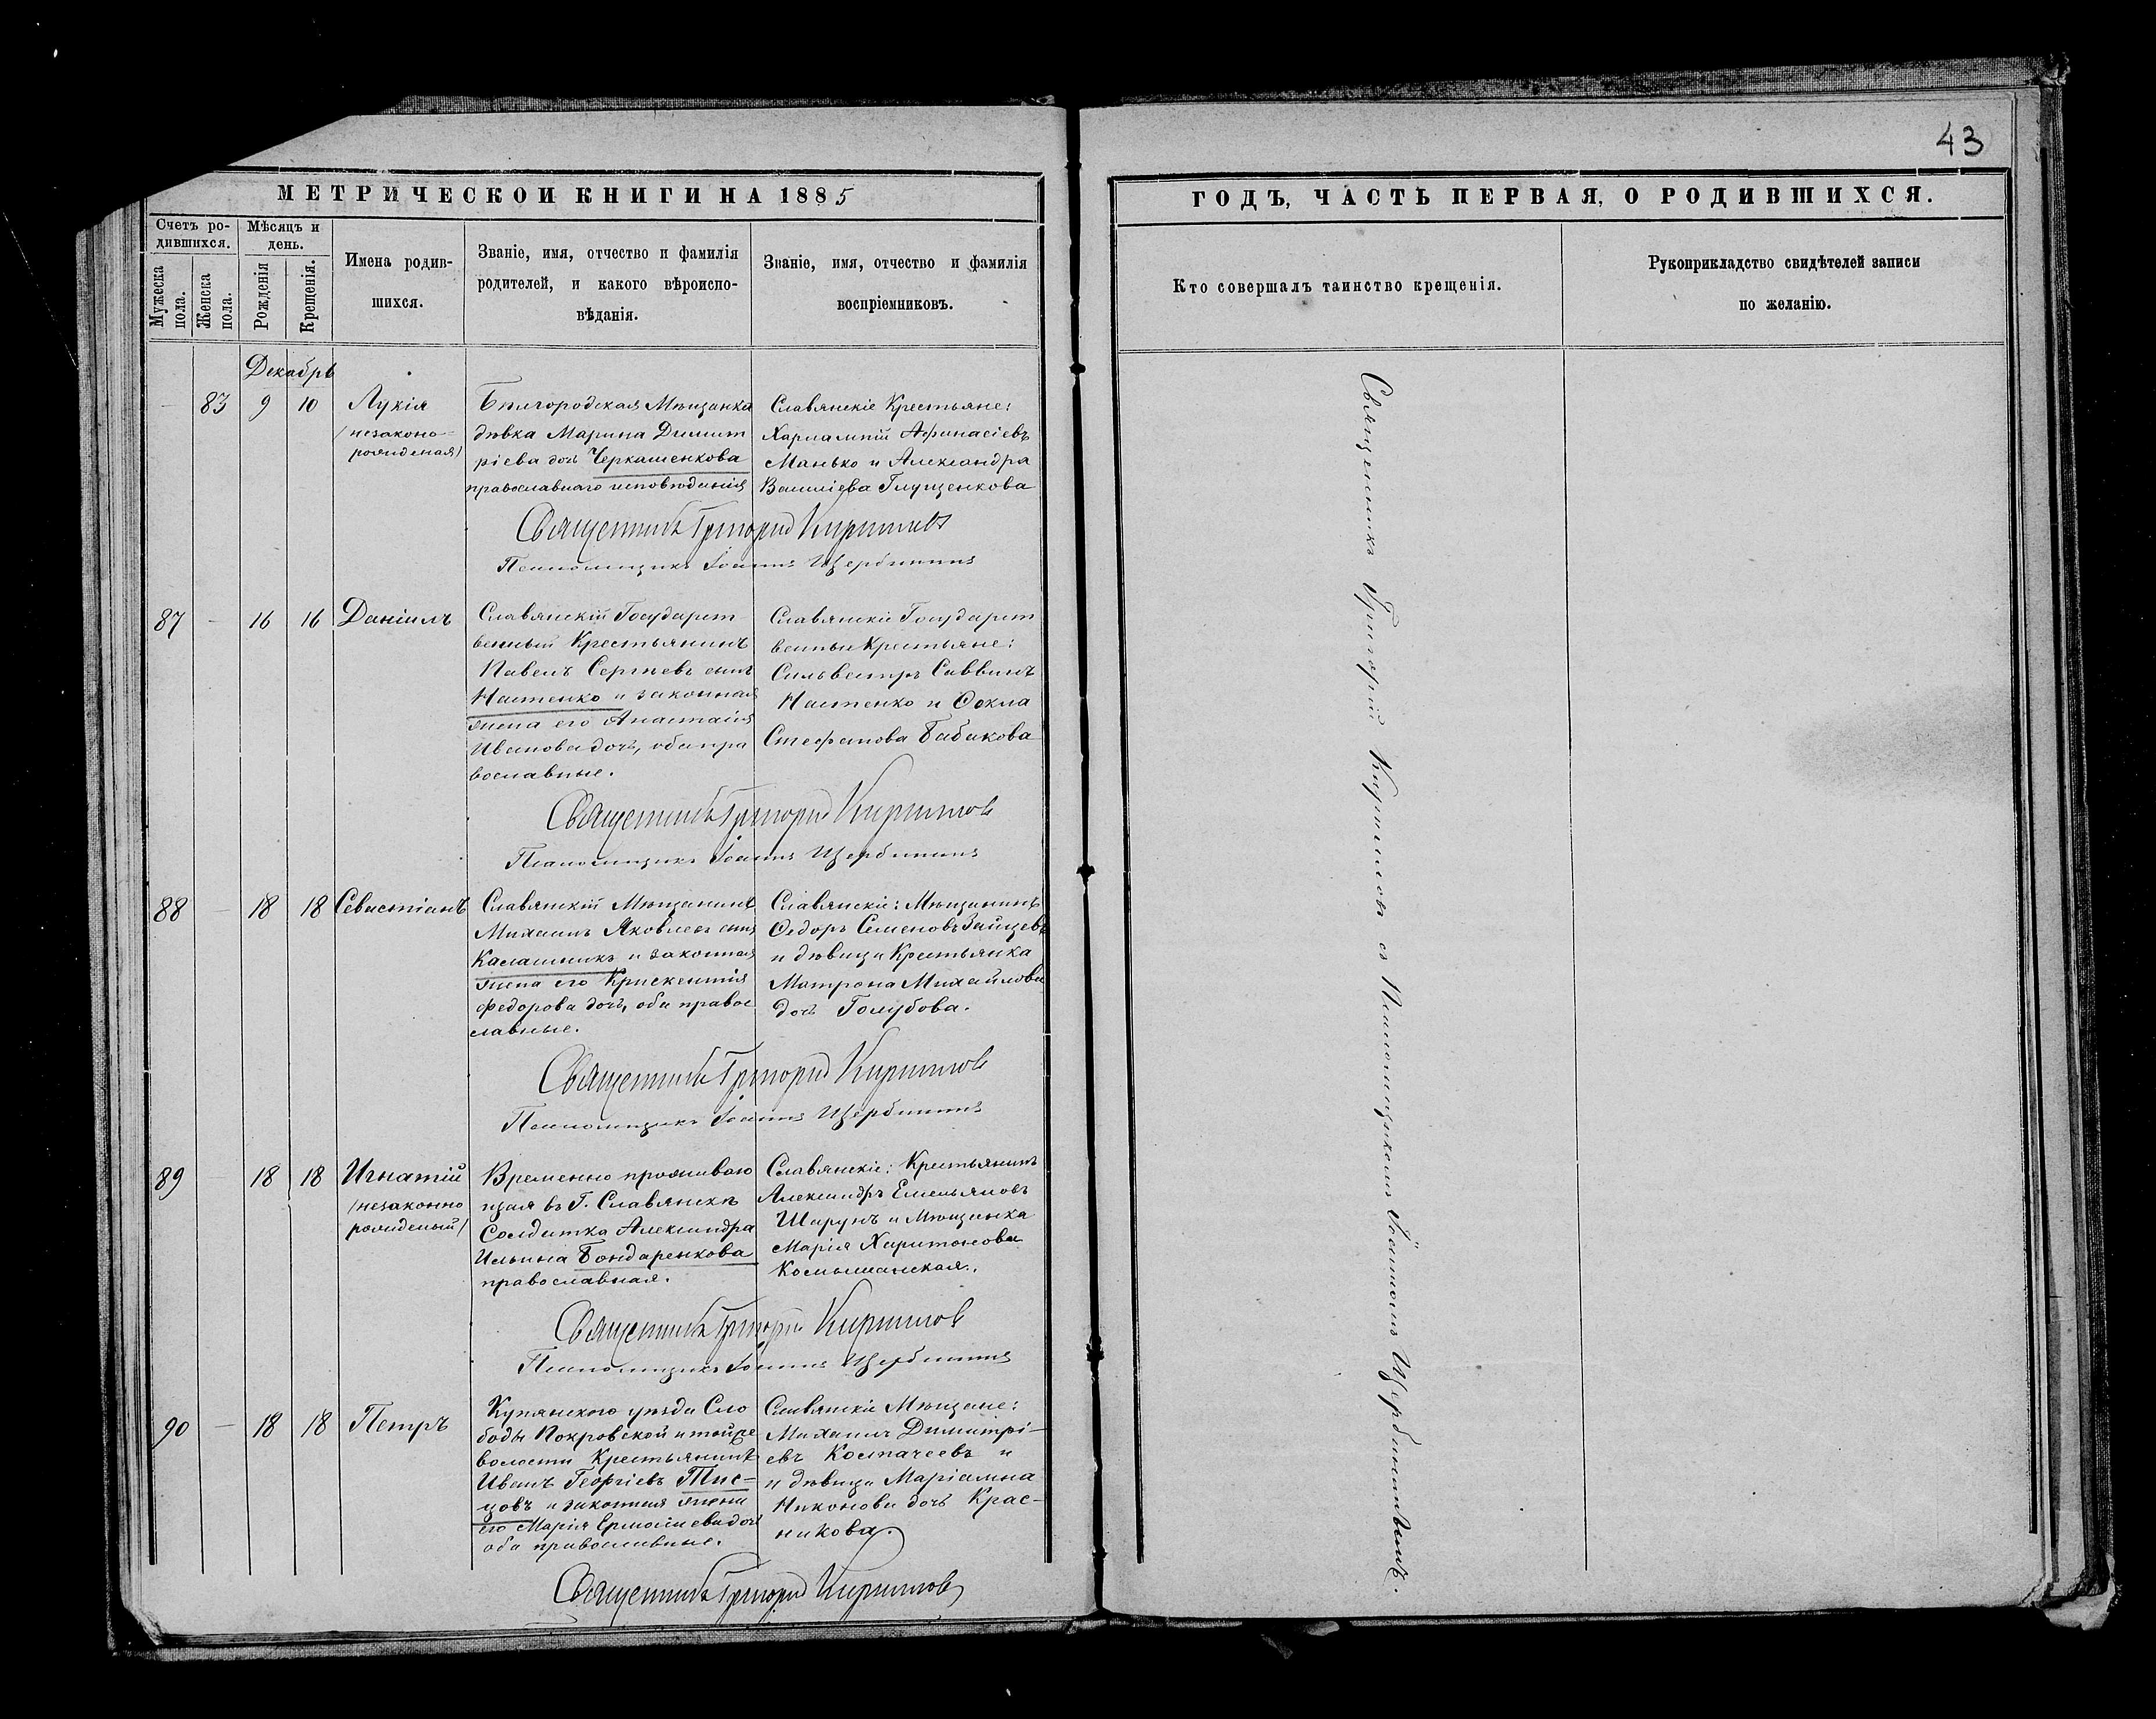 43
МЕТРИЧЕСКОЙ КНИГИ НА 1885
Счетъ ро-
дившихся.
Мужеска
пола.
Женска
пола.
Мѣсяцъ и
день.
Рожденія
Крещенія.
Имена родив-
шихся.
Званіе, имя, отчество и фамилія
родителей, и какого вѣроиспо-
вѣданія.
Званіе, имя, отчество и фамилія
воспріемниковъ.
Декабрь
83 9 10
Лукія
/незаконо-
рожденая/
Бѣлгородская Мѣщанка
дѣвка Марина Димит
ріева дочь Черкашенкова
православнаго исповѣданія
Славянскіе Крестьяне:
Харлампій Афанасіевъ
Манько и Александра
Василіева Глущенкова
Священникъ Григорій Кириллов
Псаломщикъ Іоаннъ Щербининъ
87 - 16 16
Даніилъ
Славянскій Государст
венный Крестьянинъ
Павелъ Сергѣевъ сынъ
Настенко и законная
жена его Анастасія
Иванова дочь, оба пра
вославные.
Славянскіе Государст
венные Крестьяне:
Сильвестръ Саввинъ
Настенко и Ѳекла
Стефанова Бабакова
Священникъ Григорій Кириллов
Псаломщикъ Іоаннъ Щербининъ
88 - 18 18
Севастіанъ
Славянскій Мѣщанинъ
Михаилъ Яковлевъ сынъ
Калашникъ и законная
жена его Крискентія
Федорова дочь, оба правос
лавные.
Славянскіе: Мѣщанинъ
Ѳедоръ Семеновъ Зайцевъ
и дѣвица Крестьянка
Матрона Михайлова
дочь Голубова.
Священникъ Григорій Кириллов
Псаломщикъ Іоаннъ Щербининъ
89 - 18 18
Игнатій
/незаконно
рожденый/
Временно проживаю
щая въ Г. Славянскѣ
Солдатка Александра
Ильина Бондаренкова
православная.
Славянскіе: Крестьянинъ
Александръ Емельяновъ
Шарунъ и Мѣщанка
Марія Харитонова
Священникъ Григорій Кириллов
Псаломщикъ Іоаннъ Щербининъ
90 - 18 18
Петръ
Купянского уѣзда Сло
боды Покровской и тойже
волости Крестьянинъ
Иванъ Георгіевъ
и законная жена
его Марія дочь
оба православные.
Славянскіе Мѣщане:
Михаилъ Димитрі-
евъ Колпачеевъ и
и дѣвица Маріамна
Никонова дочь Крас-
никова.
Священникъ Григорій Кириллов
ГОДЪ, ЧАСТЬ ПЕРВАЯ, О РОДИВШИХСЯ.
Кто совершалъ таинство крещенія.
Рукоприкладство свидѣтелей записи
по желанію.
Священникъ Григорій Кирилловъ съ Псаломщикомъ Іоанномъ Щербининымъ.